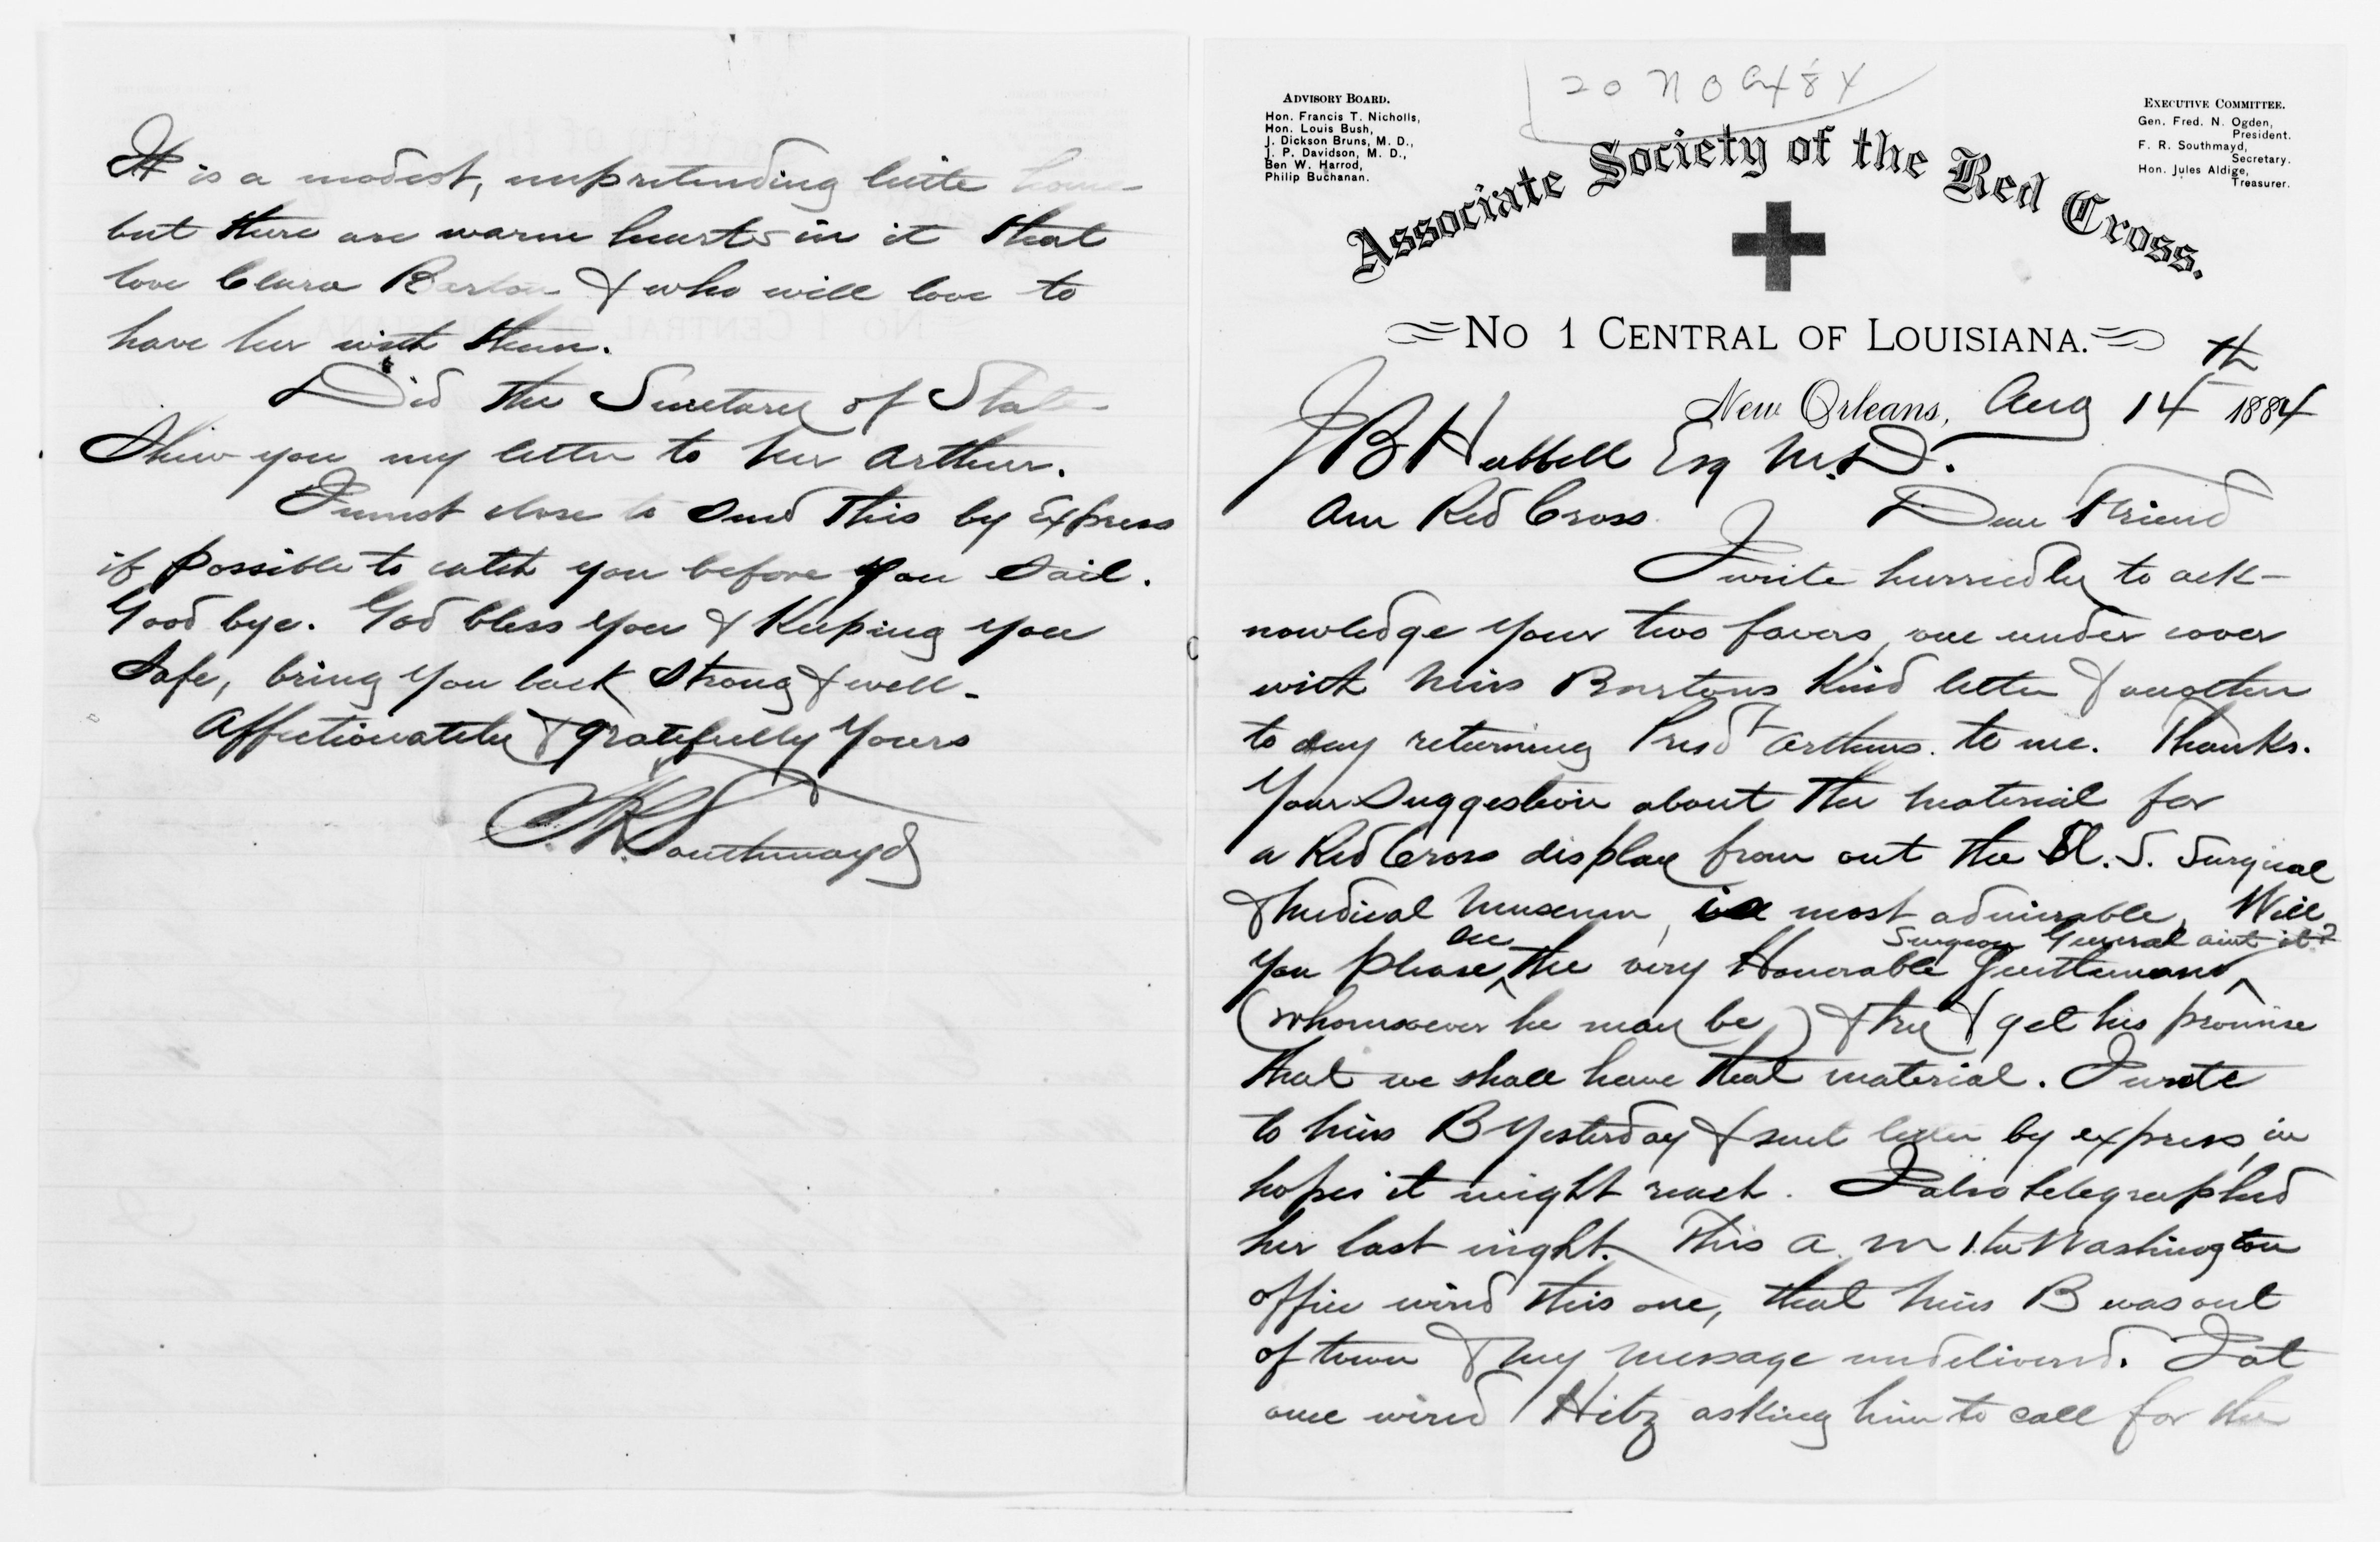 It is a modest, unpretending little home
but there are warm hearts in it that
love Clara Barton & who will love to
have her with them.
Did the Secretary of State
Show you my letter to Mr Arthur.
I must close to send this by Express
if possible to catch you before you sail.
Good bye. God bless you & Keeping you
safe, bring you back strong & well-
Affectionately & gratefully Yours
F. R. Southmayd
20 N O
Advisory Board.
Hon. Francis T. Nicholls,
Hon. Louis Bush,
J. Dickson Bruns, M. D.,
J. P. Davidson, M. D.,
Ben W. Harrod,
Philip Buchanan.
Executive Committee.
Gen. Fred. N. Ogden,
President.
F. R. Southmayd,
Secretary.
Hon. Jules Aldige,
Treasurer.
Associate Society of the Red Cross.
No 1 Central of Louisiana.
New Orleans, Aug 14th 1884
J B Hubbell Esq M.D.
Am Red Cross. Dear Friend
I write hurriedly to ack-
nowledge your two favors, one under cover
with Miss Bartons Kind letter & another
to day returning Presdt Arthurs. to me. Thanks.
Your suggestion about the material for
a Red Cross display from out the U. S. Surgical
& Medical Museum, is most admirable. Will
you please see the very Honorable Gentleman Surgeon General aint it?
(whomsoever he may be) & try & get his promise
that we shall have that material. I wrote
to Miss B Yesterday & sent letter by express, in
hopes it might reach. I also telegraphed
her last night. This a. m the Washington
office wired this one, that Miss B was out
of town & my message undelivered. I at
once wired Hitz asking him to call for the